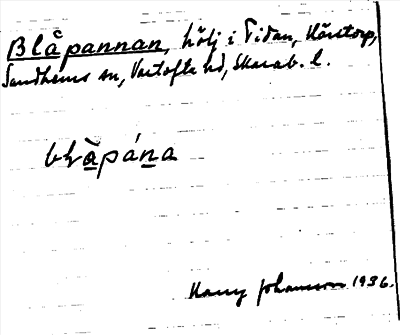 Blåpannan, hölj i Tidan, Hörstorp,
Sandhems sn, Vartofta hd, Skarab. l.
blàpána
Harry Johansson 1936.